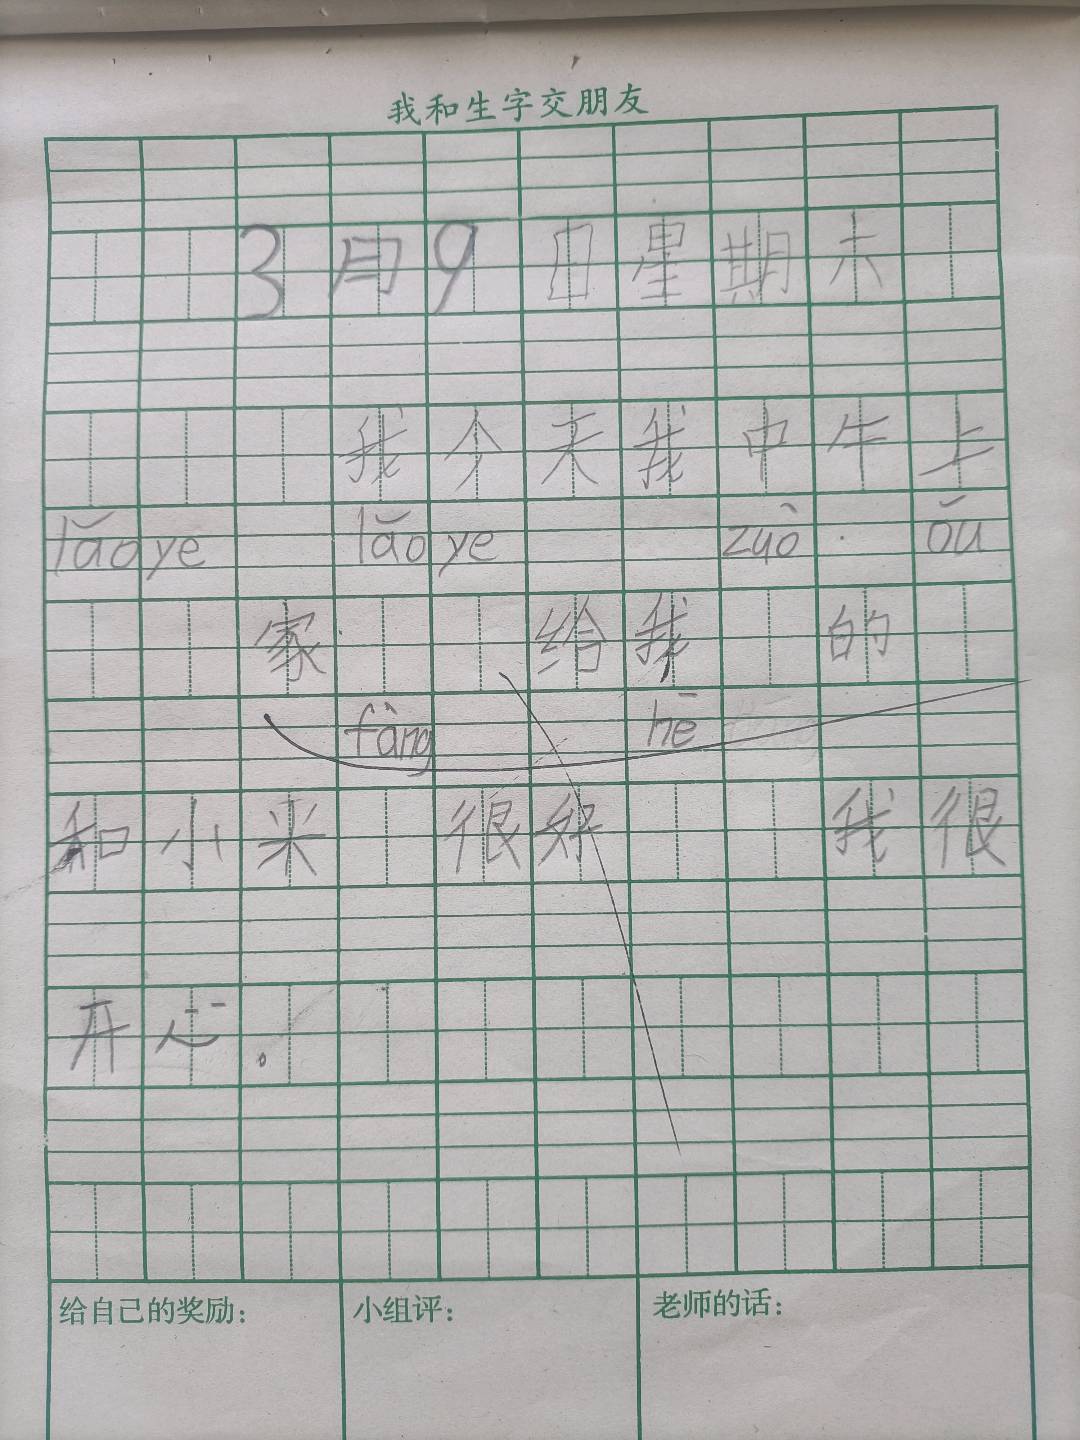 我和生字交朋友
3月9日星期六
我今天我中午上
lǎo ye lǎo ye zuò ǒu
家 给我 的
fàng hē
和小米 很好 我很
开心。
给自己的奖励：
小组评：
老师的话：